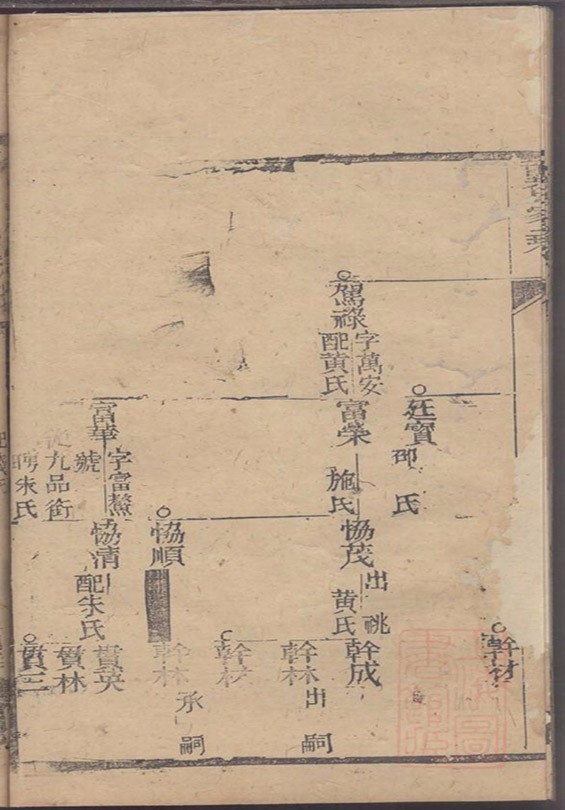 幹材
廷寶
邵氏
駕祿
字萬安
配黃氏
富榮
施氏
協茂
出祧
黃氏
幹成
幹林
出嗣
幹材
協順
幹林
承嗣
富華
字富鰲
號
從九品銜
聘朱氏
協清
配朱氏
貫英
貫林
貫三